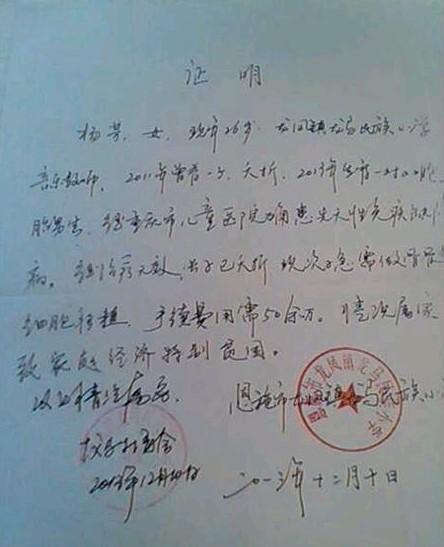 证明
杨芳，女，现年26岁，龙凤镇龙马民族小学
音乐教师，2011年曾育一子，夭折，2013年生育一对双胞
胎男生，经重庆市儿童医院确患先天性免疫缺陷
病。经治疗无效，长子已夭折，现次子急需做骨髓
细胞移植，手续费用需50余万。情况属实
致家庭经济特别贫困。
以上情况属实。 恩施市龙凤镇龙马民族小学
2013年12月10日 二〇一三年十二月十日